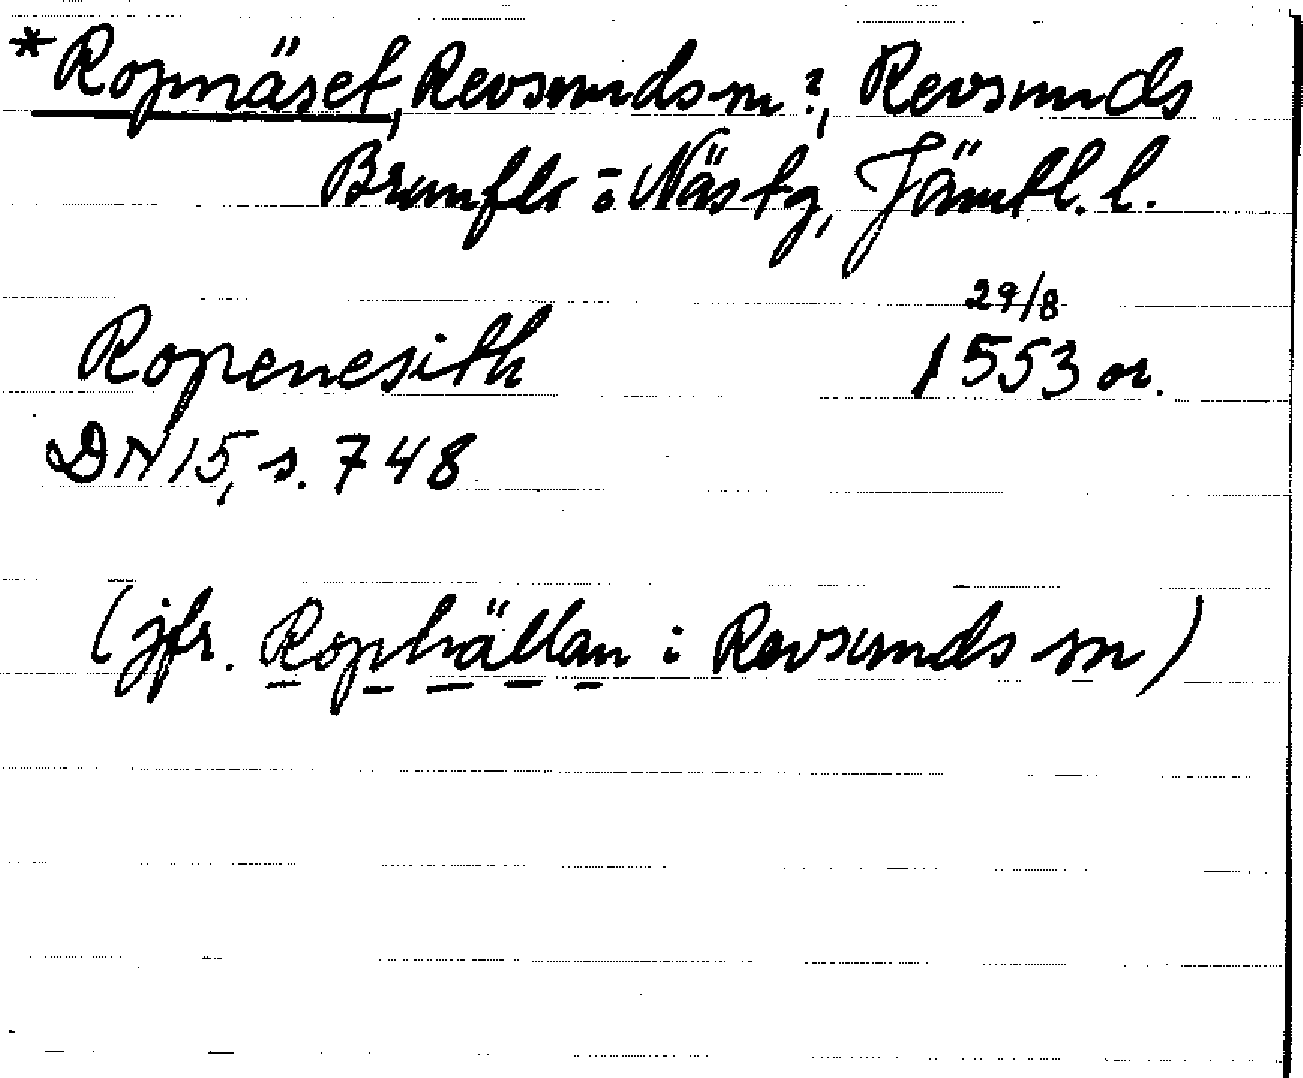 *Ropnäset, Revsunds sn?, Revsunds
Brunflo o Näs tg, Jämtl. l.
29/8
Ropenesith 1553 or.
DN 15, s. 748
(jfr. Rophällan i Revsunds sn)